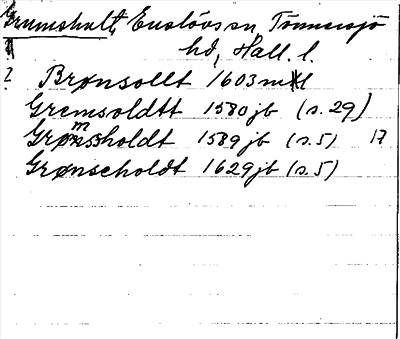 Grumshult, Enslövs sn, Tönnersjö
hd, Hall. l.
? Brønsollt 1603 mtl
Gremsoldtt 1580 jb (s. 29)
m
Grønssholdt 1589 jb (s. 5) 17
Grønscholdt 1629 jb (s. 5)